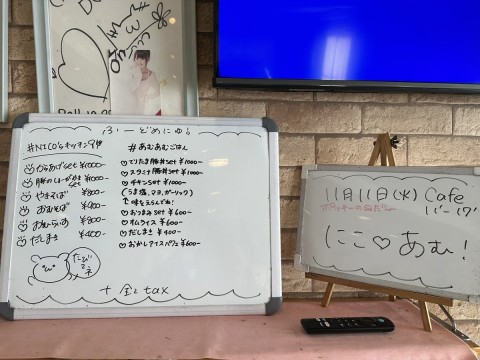 ふーどめにゅー
#NICO'sキッチン
からあげset ¥1000-
豚のしょうが焼きset ¥1000-
やきそば ¥800-
おむそば ¥900-
おむらいす ¥800-
だしまき ¥400-
たべてネ
#あむあむごはん
♡てりたま豚丼set ¥1000-
♡スタミナ豚丼set ¥1000-
♡チキンset ¥1000-
(うま塩、マヨ、ガーリック)
↑味をえらんでね!
♡おつまみset ¥600-
♡オムライス ¥600-
♡だしまき ¥400-
♡おかしアイスパフェ ¥600-
+ 全と tax
11月11日(火) Cafe
ポッキーの日だよ
11~17
にこ♡あむ!